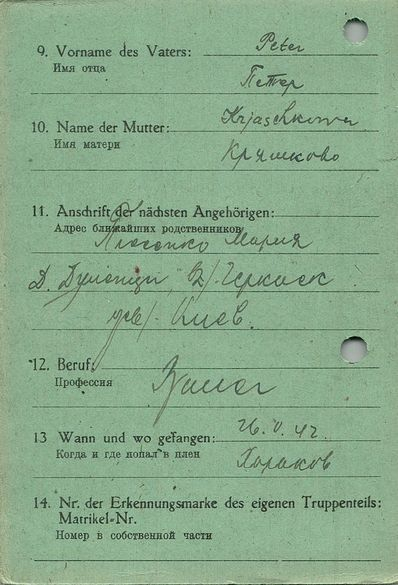 9. Vorname des Vaters: Peter
Имя отца Петер
10. Name der Mutter: Krjaschkowa
Имя матери Кряшково
11. Anschrift der nächsten Angehörigen:
Адрес ближайших родственников
Мария
Д. р/. Черкасск
Киев.
12. Beruf: Bauer
Профессия
13 Wann und wo gefangen: 26. V. 42
Когда и где попал в плен Харьков
14. Nr. der Erkennungsmarke des eigenen Truppenteils:
Matrikel-Nr.
Номер в собственной части